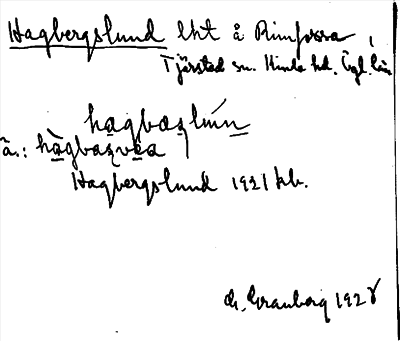 Hagbergslund lht å Rimforsa,
Tjärstad sn. Kinda hd. Ögl. län
hagbæ̣rlún
ä.: hàgbaʒvẹa
Hagbergslund 1921 kb.
G. Granberg 1928